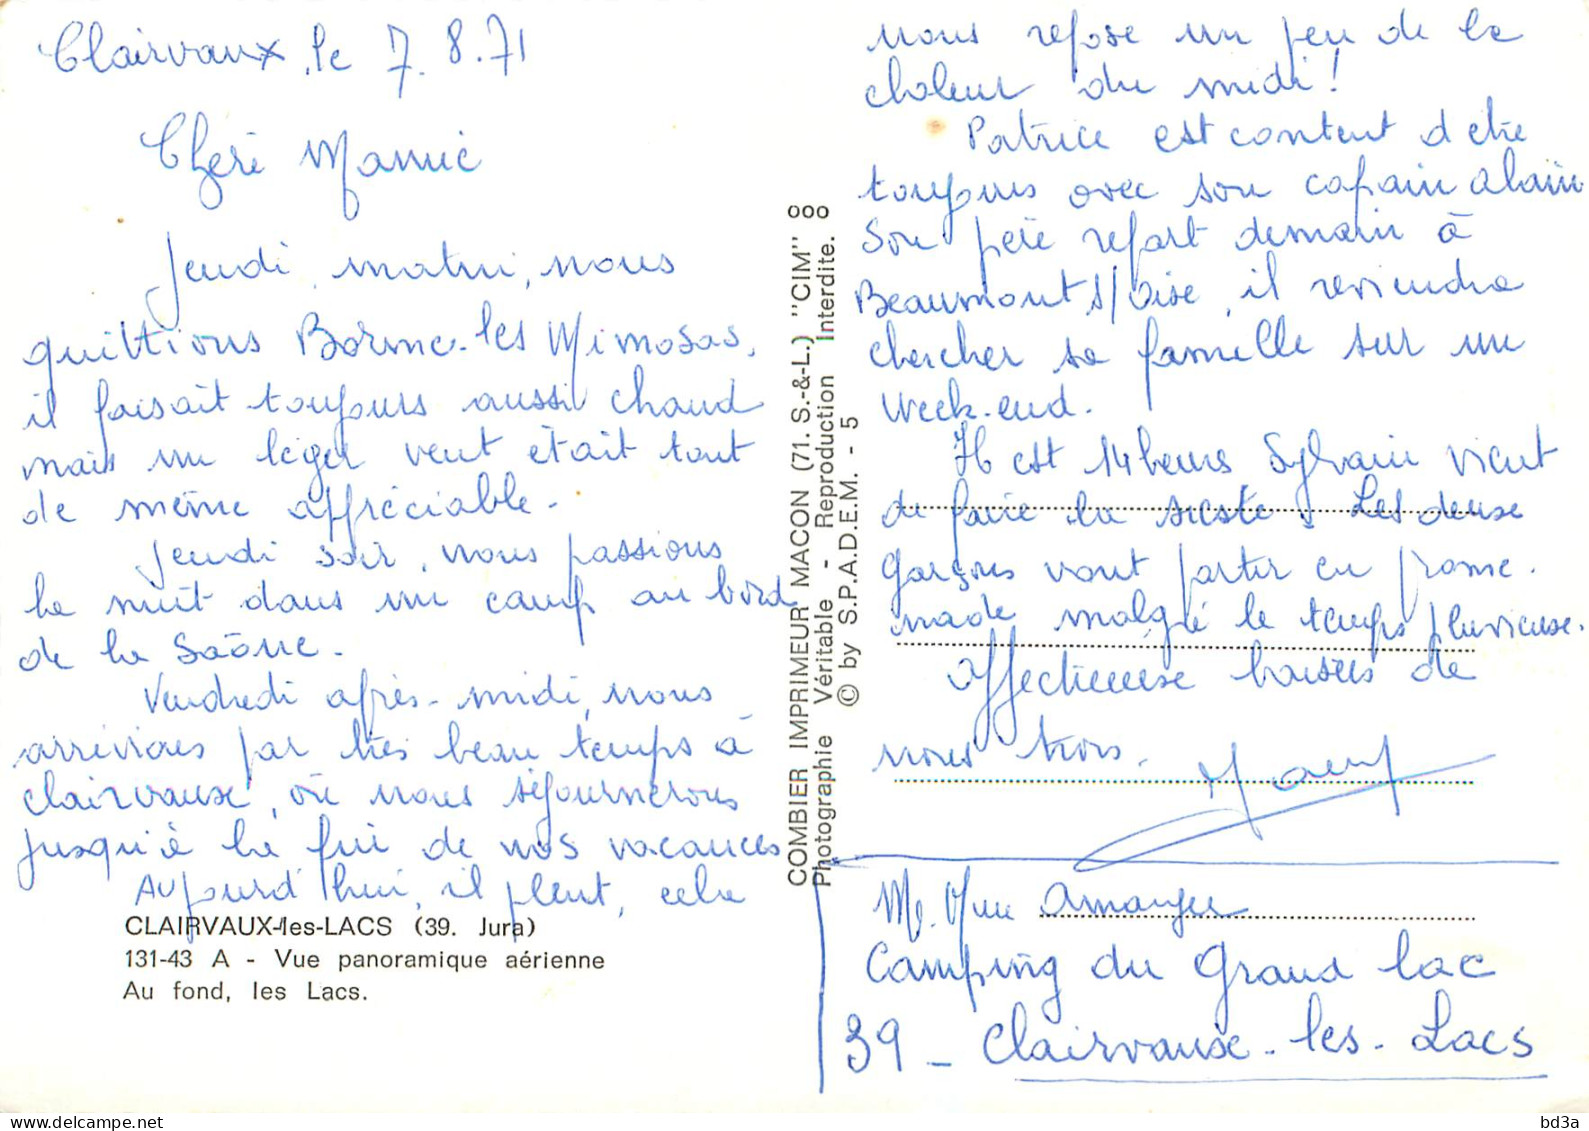 Clairvaux, le 7.8.71
Chère Mamie
Jeudi matin, nous
quittions Borme-les Mimosas,
il faisait toujours aussi chaud
mais un léger vent était tout
de même appréciable.
Jeudi soir, nous passions
la nuit dans un camp au bord
de la Saône.
Vendredi après-midi, nous
arrivions par très beau temps à
Clairvaux, où nous séjournerons
jusqu'à la fin de nos vacances
Aujourd'hui, il pleut, cela
CLAIRVAUX-les-LACS (39. Jura)
131-43 A - Vue panoramique aérienne
Au fond, les Lacs.
COMBIER IMPRIMEUR MACON (71. S.-&-L.) "CIM"
Photographie Véritable - Reproduction Interdite.
© by S.P.A.D.E.M. - 5
nous repose un peu de la
chaleur du midi!
Patrice est content d'etre
toujours avec son copain Alain
Son père repart demain à
Beaumont s/Oise, il reviendra
chercher sa famille sur un
week-end.
Il est 14 heures Sylvain vient
de faire la sieste. Les deux
garçons vont partir en prome-
nade malgré le temps pluvieux.
Affectueuse baisers de
nous trois.
M. Mme Amanger
Camping du Grand Lac
39 - Clairvaux-les-Lacs
bd3a